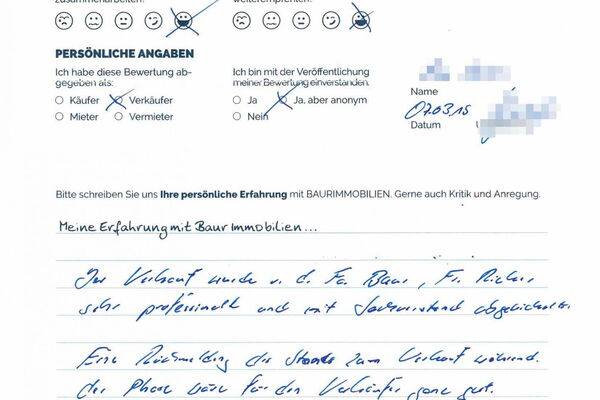 zusammenarbeiten? weiterempfehlen?
PERSÖNLICHE ANGABEN
Ich habe diese Bewertung ab- Ich bin mit der Veröffentlichung
gegeben als: meiner Bewertung einverstanden.
Käufer Verkäufer Ja Ja, aber anonym
Mieter Vermieter Nein
Name
07.03.18
Datum
Bitte schreiben Sie uns Ihre persönliche Erfahrung mit BAURIMMOBILIEN. Gerne auch Kritik und Anregung.
Meine Erfahrung mit Baur Immobilien...
Der Verkauf wurde v. d. Fa. Baur, Fr.
sehr professionell und mit Sachverstand abgewickelt.
Eine Rückmeldung des Stands zum Verkauf während
der Phase wäre für den Verkäufer ganz gut.